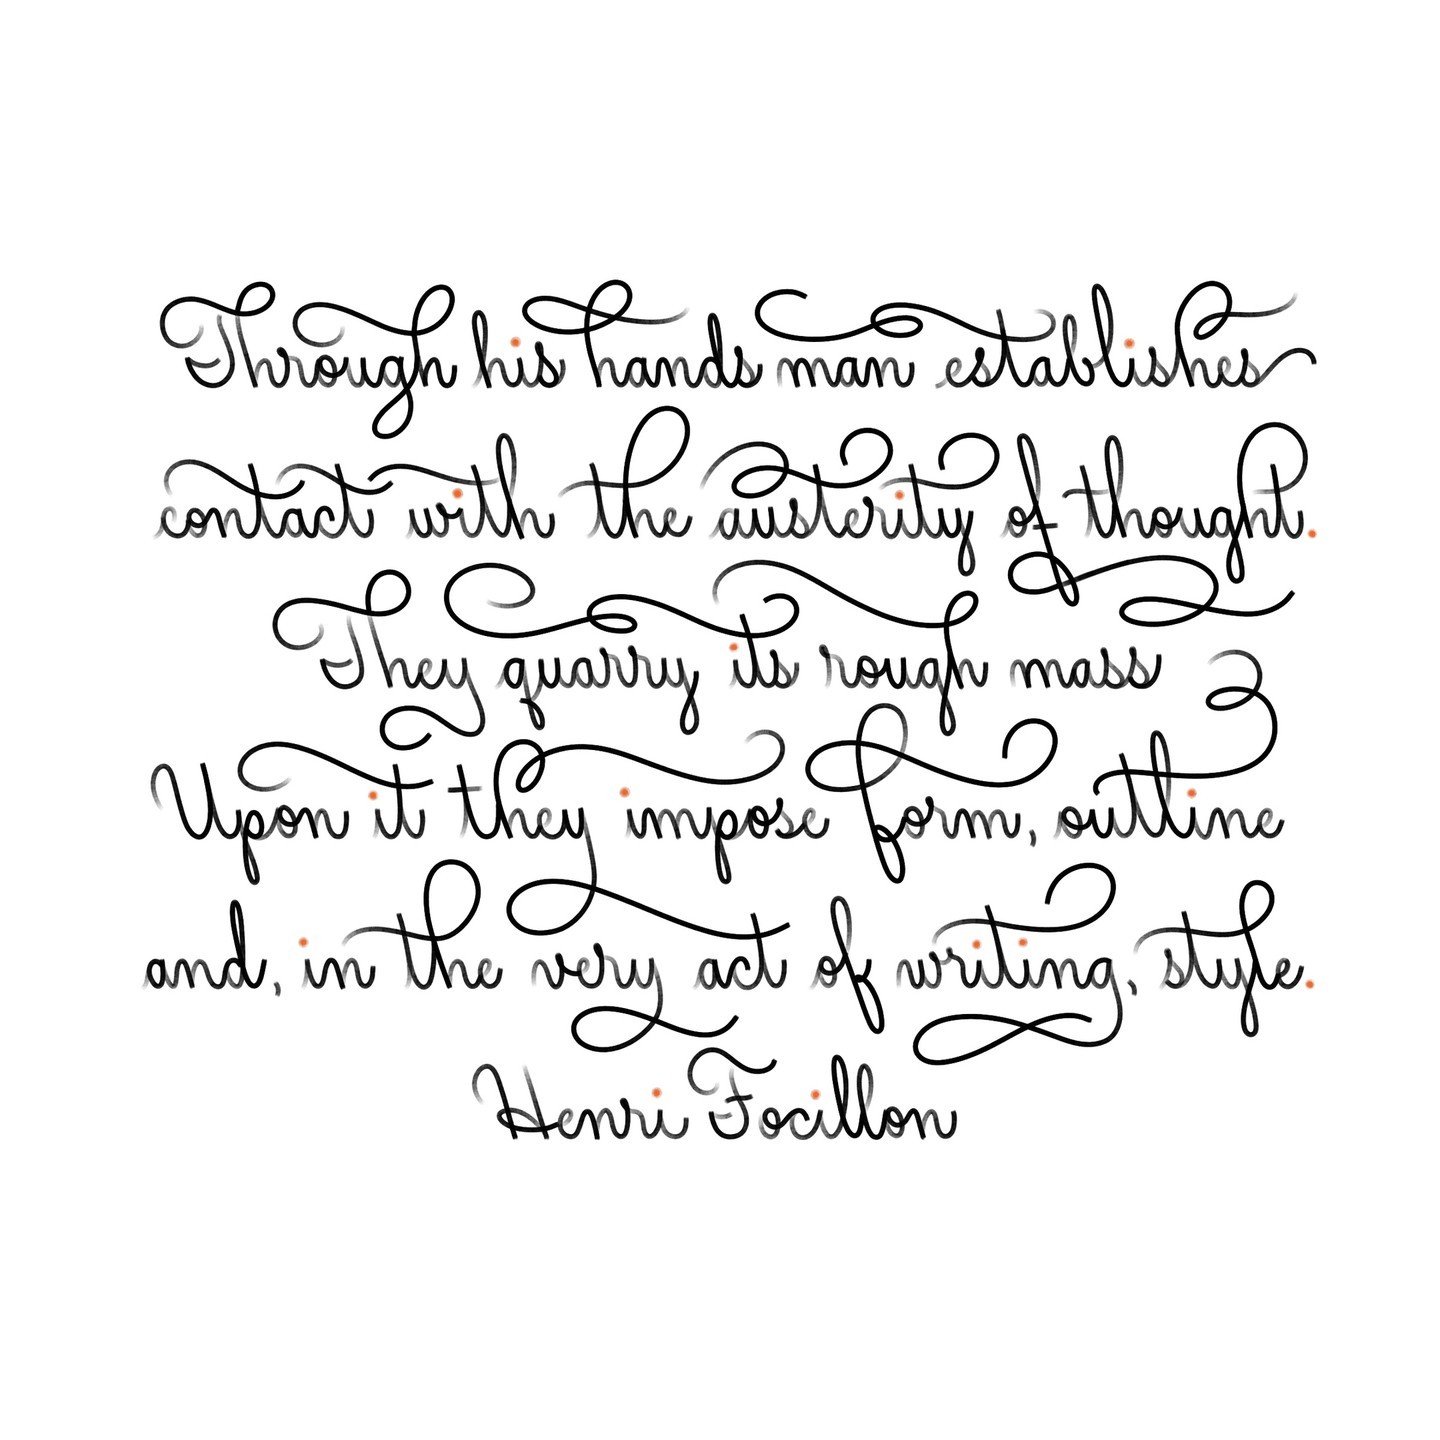 Through his hands man establishes
contact with the austerity of thought.
They quarry its rough mass
Upon it they impose form, outline
and, in the very act of writing, style.
Henri Focillon